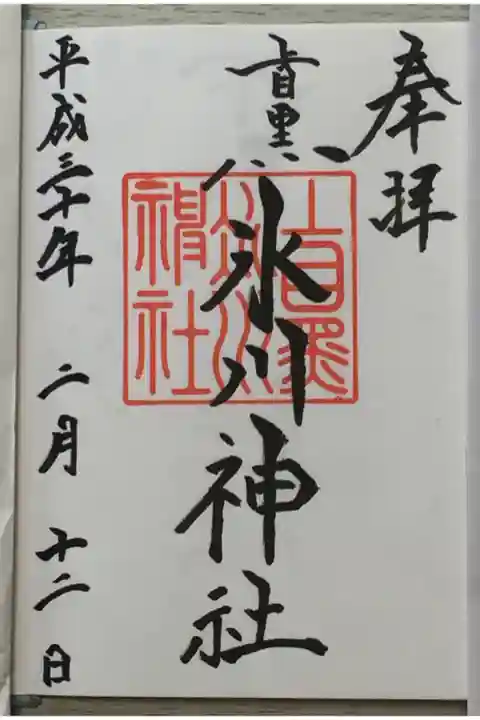 奉拝
上目黒氷川神社
平成三十年 二月 十二日
上目黒
氷川
神社